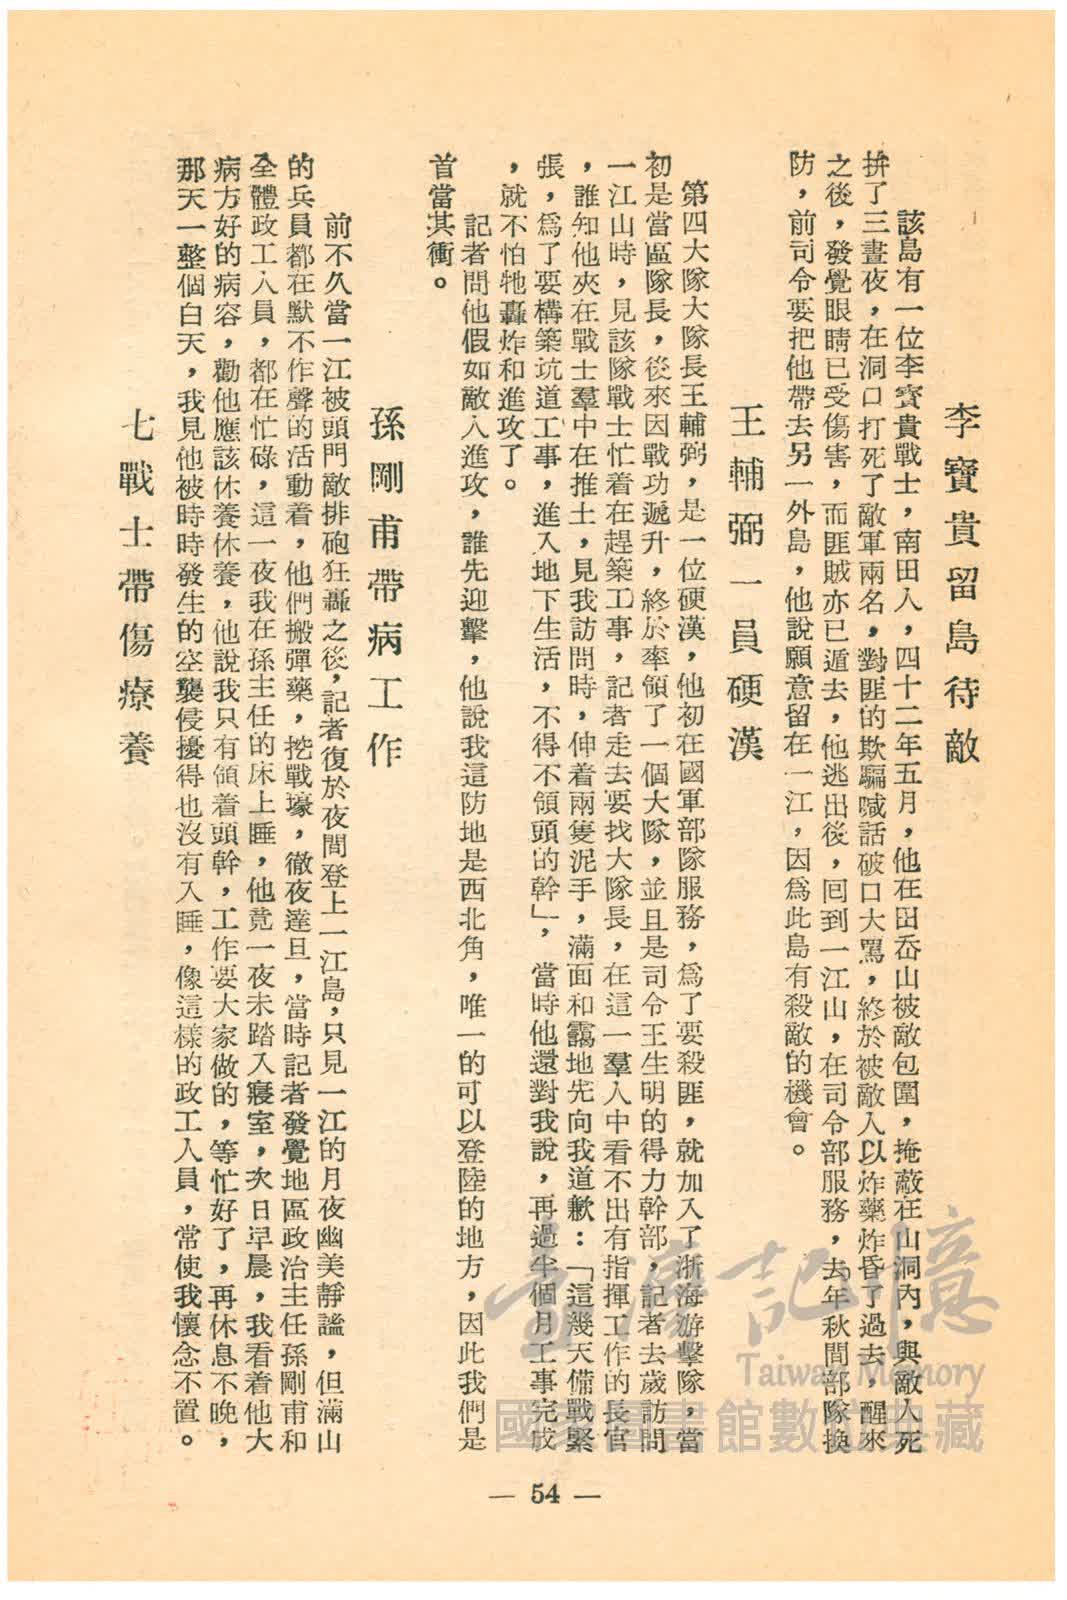 李寶貴留島待敵
該島有一位李寶貴戰士，南田人，四十二年五月，他在田岙山被敵包圍，掩敵在山洞內，與敵人死
拚了三晝夜，在洞口打死了敵軍兩名，對匪的欺騙喊話破口大罵，終於被敵人以炸藥炸昏了過去，醒來
之後，發覺眼睛已受傷害，而匪賊亦已遁去，他逃出後，回到一江山，在司令部服務，去年秋間部隊換
防，前司令要把他帶去另一外島，他說願意留在一江，因爲此島有殺敵的機會。
王輔弼一員硬漢
第四大隊大隊長王輔弼，是一位硬漢，他初在國軍部隊服務，爲了要殺匪，就加入了浙海游擊隊，當
初是當區隊長，後來因戰功遞升，終於率領了一個大隊，並且是司令王生明的得力幹部，記者去歲訪問
一江山時，見該隊戰士忙着在趕築工事，記者走去要找大隊長，在這一羣人中看不出有指揮工作的長官
，誰知他夾在戰士羣中在推土，見我訪問時，伸着兩隻泥手，滿面和靄地先向我道歉：「這幾天備戰緊
張，爲了要構築坑道工事，進入地下生活，不得不領頭的幹」，當時他還對我說，再過半個月工事完成
，就不怕牠轟炸和進攻了。
記者問他假如敵人進攻，誰先迎擊，他說我這防地是西北角，唯一的可以登陸的地方，因此我們是
首當其衝。
孫剛甫帶病工作
前不久當一江被頭門敵排砲狂轟之後，記者復於夜間登上一江島，只見一江的月夜幽美靜謐，但滿山
的兵員都在默不作聲的活動着，他們搬彈藥，挖戰壕，徹夜達旦，當時記者發覺地區政治主任孫剛甫和
全體政工人員，都在忙碌，這一夜我在孫主任的床上睡，他竟一夜未踏入寢室，次日早晨，我看着他大
病方好的病容，勸他應該休養休養，他說我只有領着頭幹，工作要大家做的，等忙好了，再休息不晚，
那天一整個白天，我見他被時時發生的空襲侵擾得也沒有入睡，像這樣的政工人員，常使我懷念不置。
七戰士帶傷療養
— 54 —
臺灣記憶
Taiwan Memory
國家圖書館數位典藏